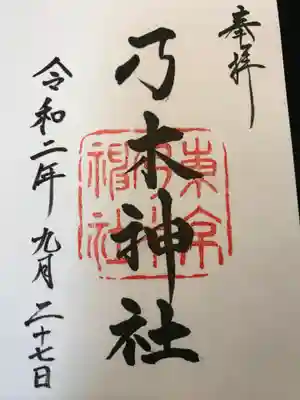 奉拝
乃木神社
東京乃木神社
令和二年九月二十七日